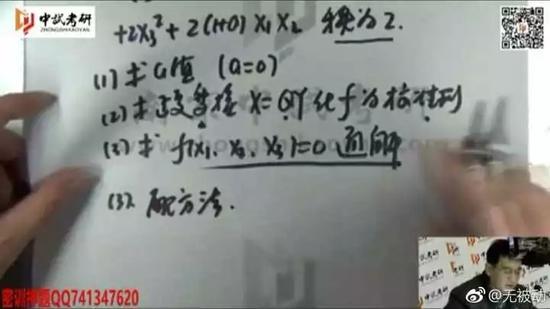 中試考研
ZHONGSHIKAOYAN
中試考研
+2x₃² + 2(1+a)x₁x₂ 秩为2.
(1) 求a值 (a=0)
(2) 求正交变换 x=QY 化f为标准型
(3) 求 f(x₁、x₂、x₃)=0 通解
(3). 配方法.
密训押题QQ741347620
@无被动